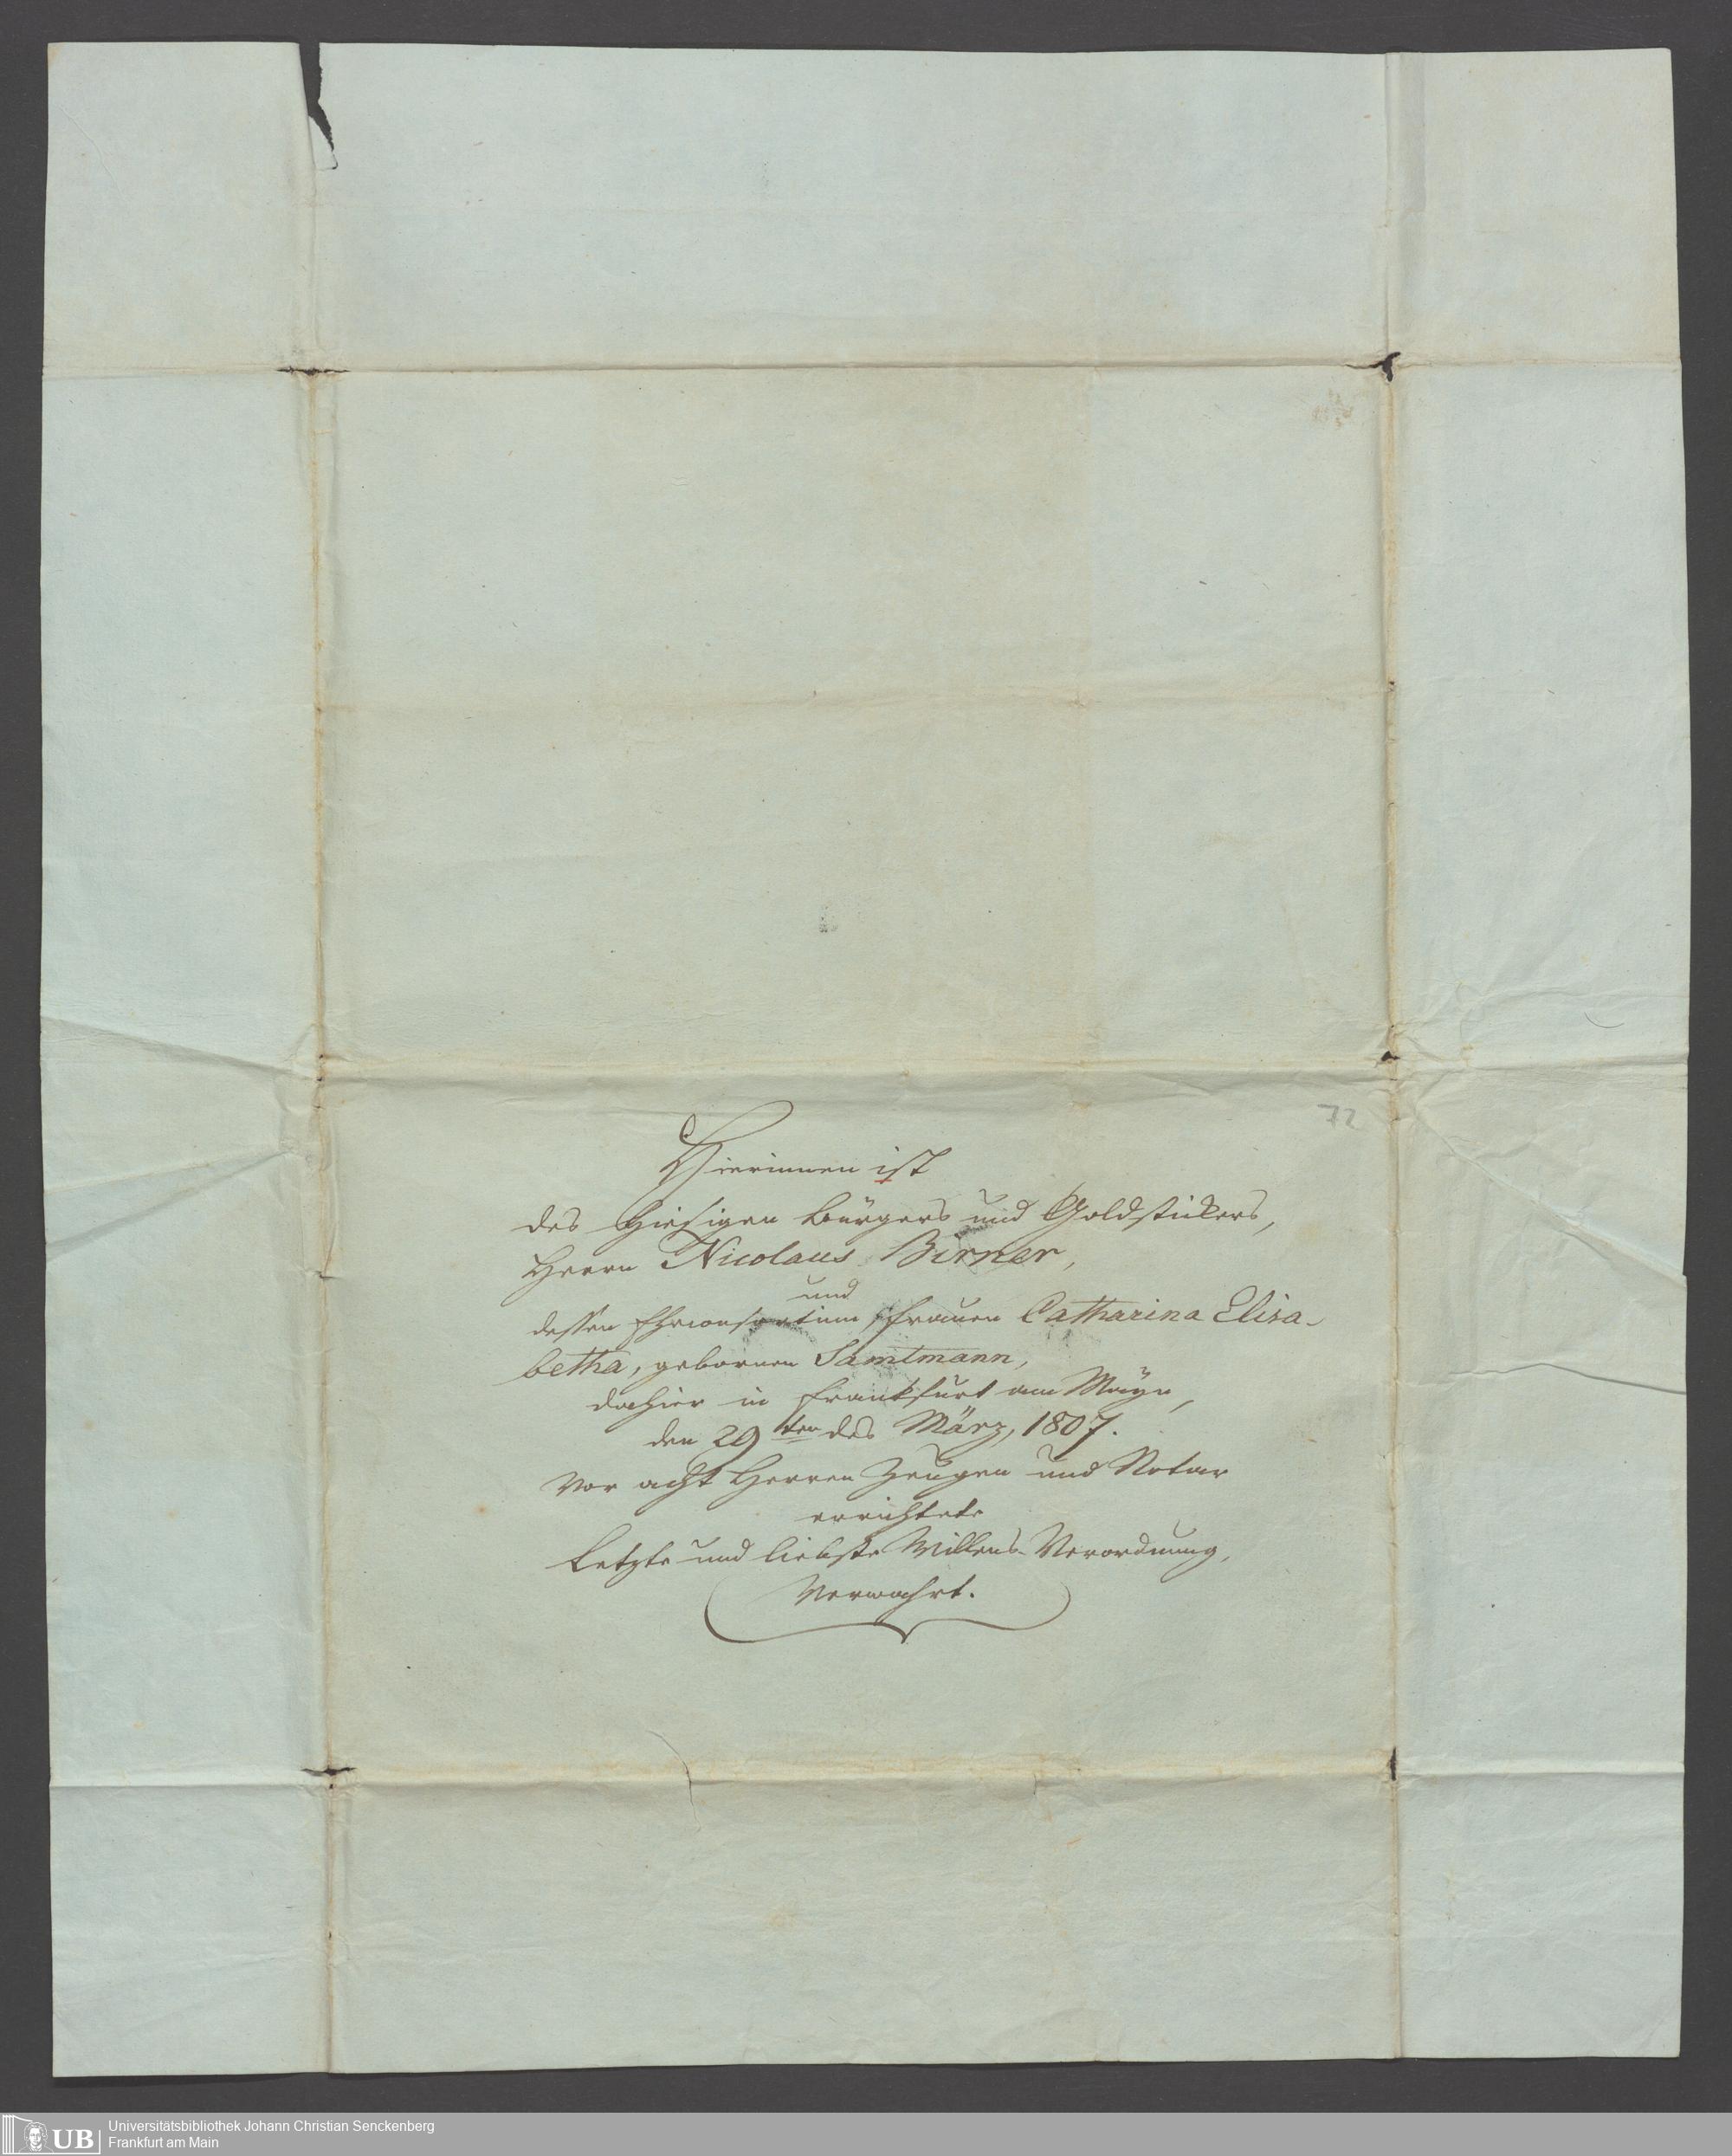 72
Hierinnen ist
des hiesigen Bürgers und Goldstickers,
Herrn Nicolaus Birner,
und
dessen Eheconsortinn, Frauen Catharina Elisa-
betha, gebornen Samtmann,
dahier in Frankfurt am Mayn,
den 29ten des März, 1807.
vor acht Herren Zeugen und Notar
errichtete
Letzte und liebste Willens-Verordnung,
Verwahrt.
UB
Universitätsbibliothek Johann Christian Senckenberg
Frankfurt am Main